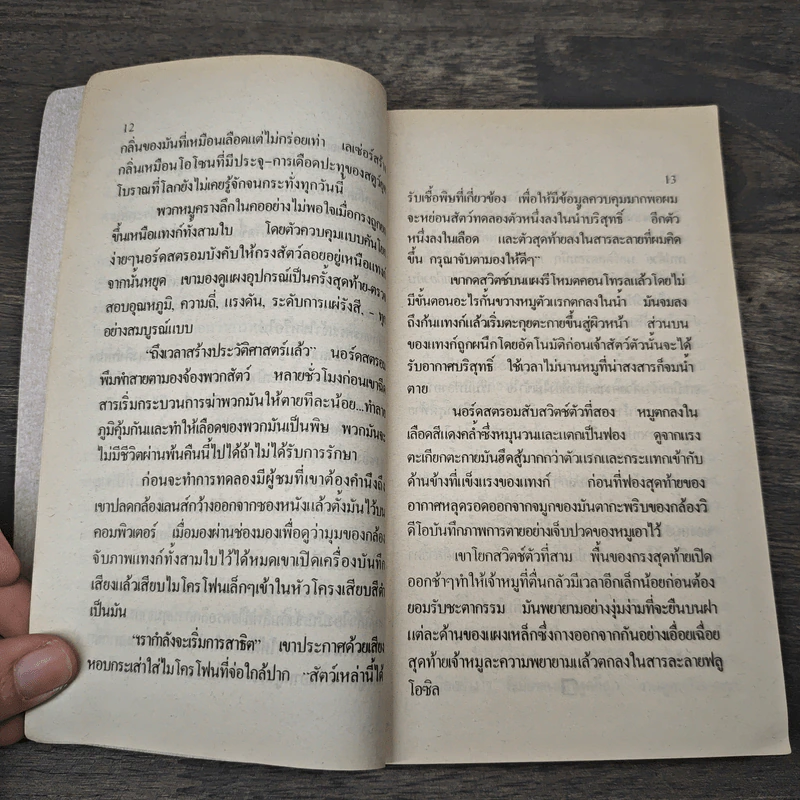 12
กลิ่นของมันที่เหมือนเลือดแต่ไม่กร่อยเท่า เลเซอร์สร้าง
กลิ่นเหมือนโอโซนที่มีประจุ-การเดือดปะทุของสตูว์ยุค
โบราณที่โลกยังไม่เคยรู้จักจนกระทั่งทุกวันนี้
พวกหมูครางลึกในคออย่างไม่พอใจเมื่อกรงถูกยก
ขึ้นเหนือแทงก์ทั้งสามใบ โดยตัวควบคุมแบบคันโยก
ง่ายๆนอร์ดสตรอมบังคับให้กรงสัตว์ลอยอยู่เหนือแทงก์
จากนั้นหยุด เขามองดูแผงอุปกรณ์เป็นครั้งสุดท้าย-ตรวจ
สอบอุณหภูมิ, ความถี่, แรงดัน, ระดับการแผ่รังสี, - ทุก
อย่างสมบูรณ์แบบ
"ถึงเวลาสร้างประวัติศาสตร์แล้ว" นอร์ดสตรอม
พึมพำสายตามองจ้องพวกสัตว์ หลายชั่วโมงก่อนเขาฉีด
สารเริ่มกระบวนการฆ่าพวกมันให้ตายทีละน้อย...ทำลาย
ภูมิคุ้มกันและทำให้เลือดของพวกมันเป็นพิษ พวกมันจะ
ไม่มีชีวิตผ่านพ้นคืนนี้ไปได้ถ้าไม่ได้รับการรักษา
ก่อนจะทำการทดลองมีผู้ชมที่เขาต้องคำนึงถึง
เขาปลดกล้องเลนส์กว้างออกจากซองหนังแล้วตั้งมันไว้บน
คอมพิวเตอร์ เมื่อมองผ่านช่องมองเพื่อดูว่ามุมของกล้อง
จับภาพแทงก์ทั้งสามใบไว้ได้หมดเขาเปิดเครื่องบันทึก
เสียงแล้วเสียบไมโครโฟนเล็กๆเข้าในหัวโครงเสียบสีดำ
เป็นมัน
"เรากำลังจะเริ่มการสาธิต" เขาประกาศด้วยเสียง
หอบกระเส่าใส่ไมโครโฟนที่จ่อใกล้ปาก "สัตว์เหล่านี้ได้
13
รับเชื้อพิษที่เกี่ยวข้อง เพื่อให้มีข้อมูลควบคุมมากพอผม
จะหย่อนสัตว์ทดลองตัวหนึ่งลงในน้ำบริสุทธิ์ อีกตัว
หนึ่งลงในเลือด และตัวสุดท้ายลงในสารละลายที่ผมคิด
ขึ้น กรุณาจับตามองให้ดีๆ"
เขากดสวิตช์บนแผงรีโหมดคอนโทรลแล้วโดยไม่
มีขั้นตอนอะไรกั้นขวางหมูตัวแรกตกลงในน้ำ มันจมลง
ถึงก้นแทงก์แล้วเริ่มตะกุยตะกายขึ้นสู่ผิวหน้า ส่วนบน
ของแทงก์ถูกผนึกโดยอัตโนมัติก่อนเจ้าสัตว์ตัวนั้นจะได้
รับอากาศบริสุทธิ์ ใช้เวลาไม่นานหมูที่น่าสงสารก็จมน้ำ
ตาย
นอร์ดสตรอมสับสวิตช์ตัวที่สอง หมูตกลงใน
เลือดสีแดงคล้ำซึ่งหมุนวนและแตกเป็นฟอง ดูจากแรง
ตะเกียกตะกายมันฮึดสู้มากกว่าตัวแรกและกระแทกเข้ากับ
ด้านข้างที่แข็งแรงของแทงก์ ก่อนที่ฟองสุดท้ายของ
อากาศหลุดรอดออกจากจมูกของมันตากะพริบของกล้องวิ
ดีโอบันทึกภาพการตายอย่างเจ็บปวดของหมูเอาไว้
เขาโยกสวิตช์ตัวที่สาม พื้นของกรงสุดท้ายเปิด
ออกช้าๆทำให้เจ้าหมูที่ตื่นกลัวมีเวลาอีกเล็กน้อยก่อนต้อง
ยอมรับชะตากรรม มันพยายามอย่างงุ่มง่ามที่จะยืนบนฝา
แต่ละด้านของแผงเหล็กซึ่งกางออกจากกันอย่างเอื่อยเฉื่อย
สุดท้ายเจ้าหมูละความพยายามแล้วตกลงในสารละลายฟลู
โอซิล